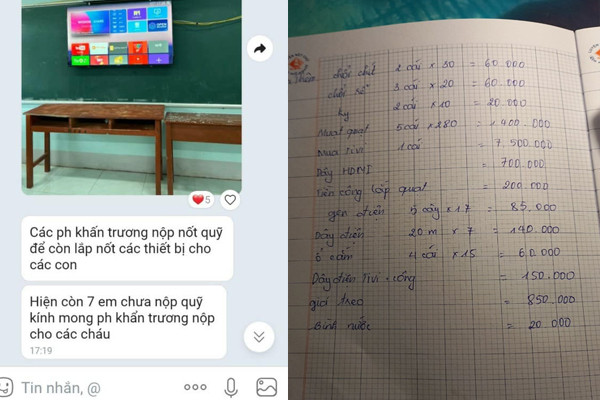 5
Các ph khẩn trương nộp nốt quỹ
để còn lắp nốt các thiết bị cho
các con
Hiện còn 7 em chưa nộp quỹ
kính mong ph khẩn trương nộp
cho các cháu
17:19
Tin nhắn, @
2 cái × 30 = 60.000
chổi rễ 3 cái × 20 = 60.000
2 cái × 10 = 20.000
Mua quạt 5 cái × 280 = 1.400.000
Mua tivi 1 cái = 7.500.000
Dây HDMI = 700.000
Tiền công lắp quạt = 200.000
gen điện 5 cây × 17 = 85.000
Dây điện 20 m × 7 = 140.000
ổ cắm 4 cái × 15 = 60.000
Dây điện Tivi + cổng = 150.000
giá treo = 850.000
Bình nước = 20.000